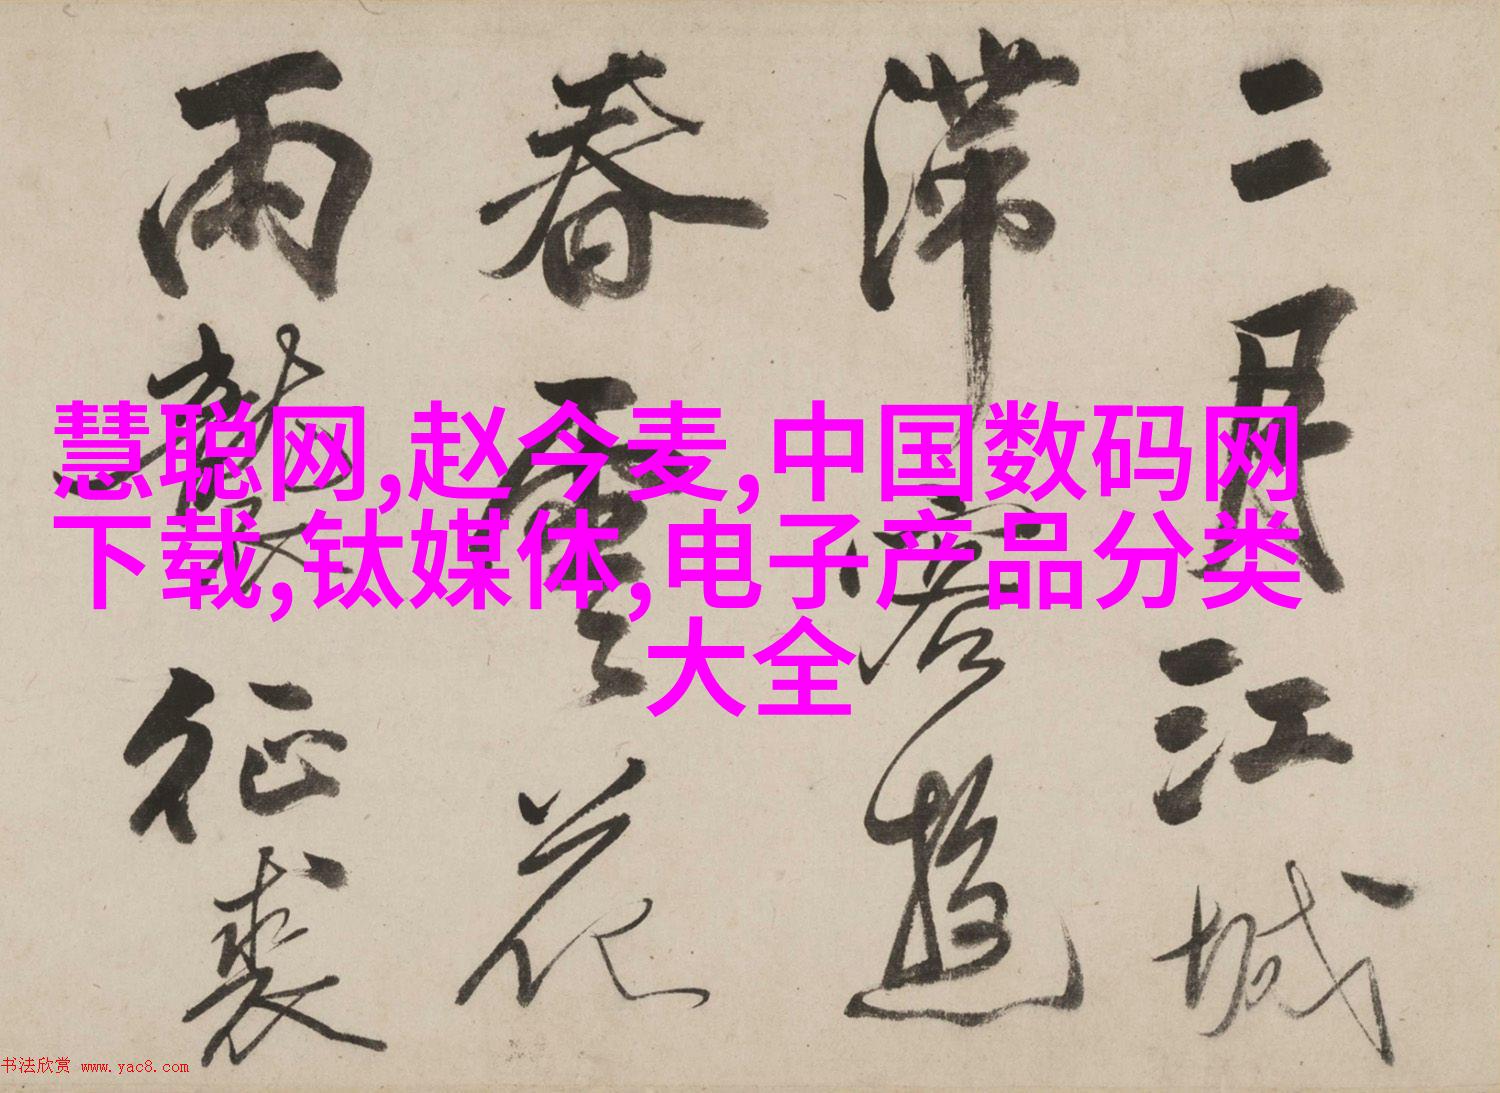 二月江城
滞客遊
春雲花
雨襲征裘
慧聪网,赵今麦,中国数码网
下载,钛媒体,电子产品分类
大全
书法欣赏 www.yac8.com